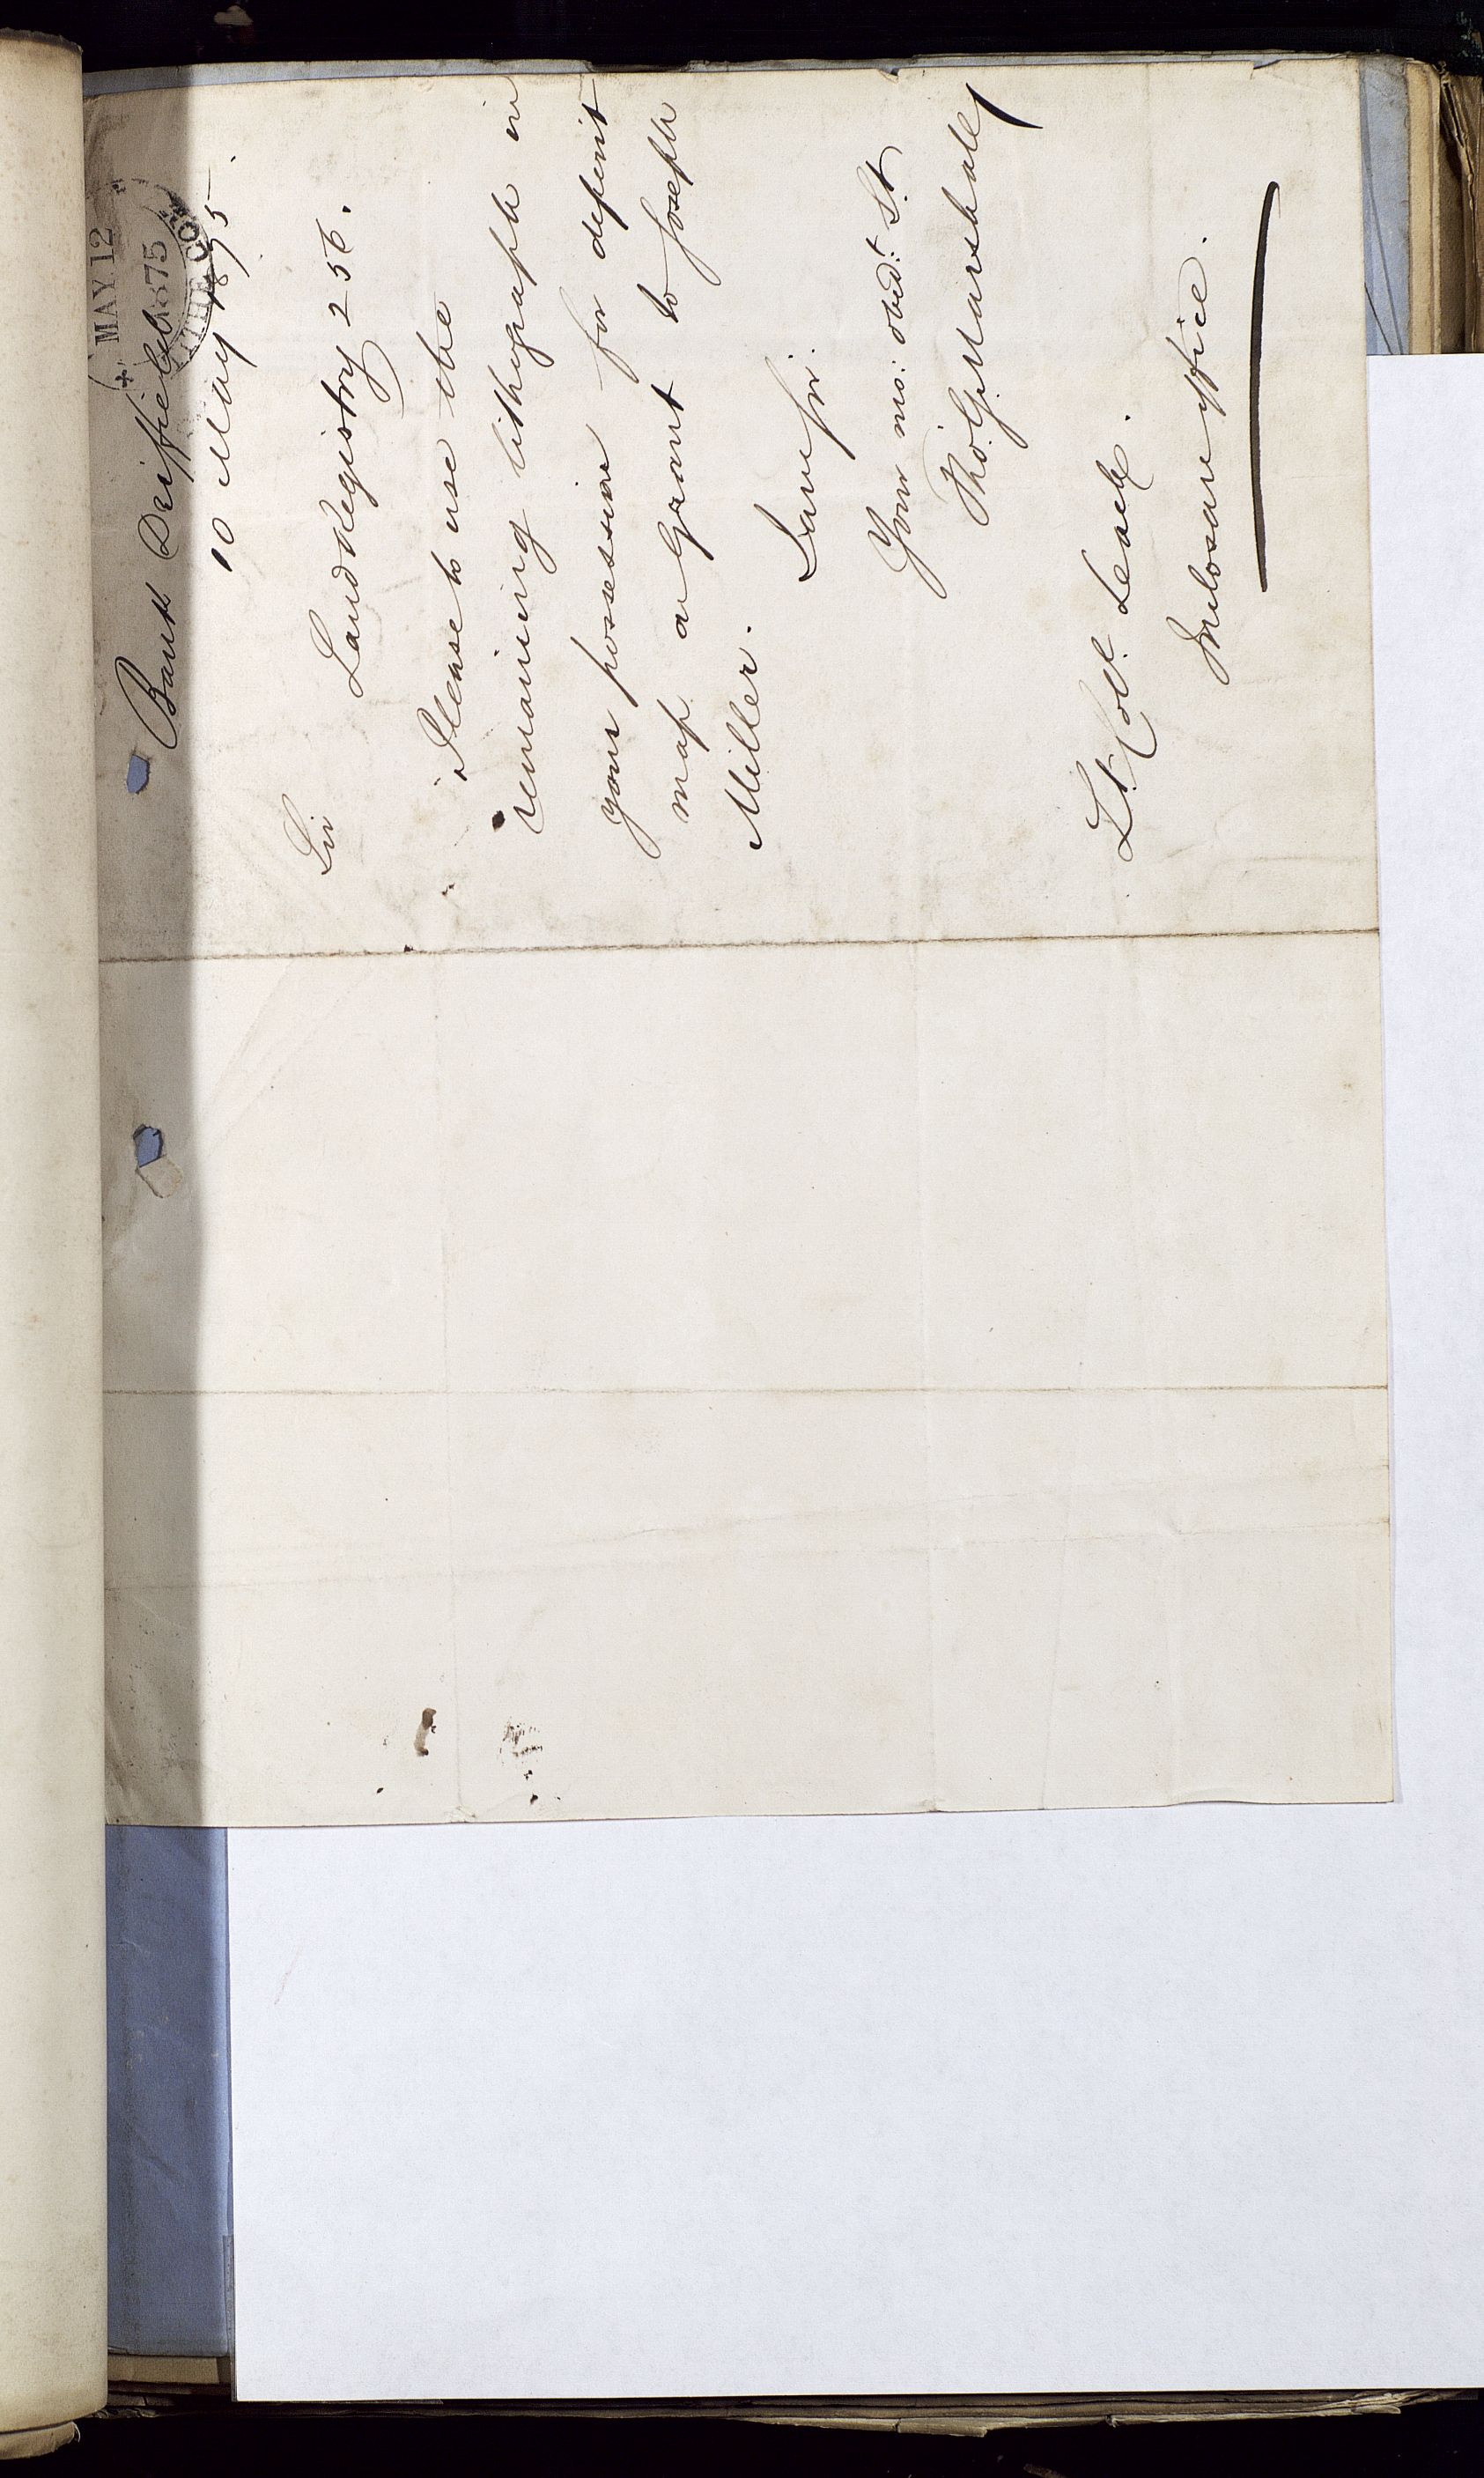 Bank Driffield
10 May 1875.
MAY 12
1875
Sir
Land Registry 256.
Please to use the
remaining lithograph in
your possession for deposit
map on Grant to Joseph
Miller.
I am Sir.
Your mo: obed.t S.t
Tho. G. Marshall
Lt. Col. Leach.
Inclosure Office.